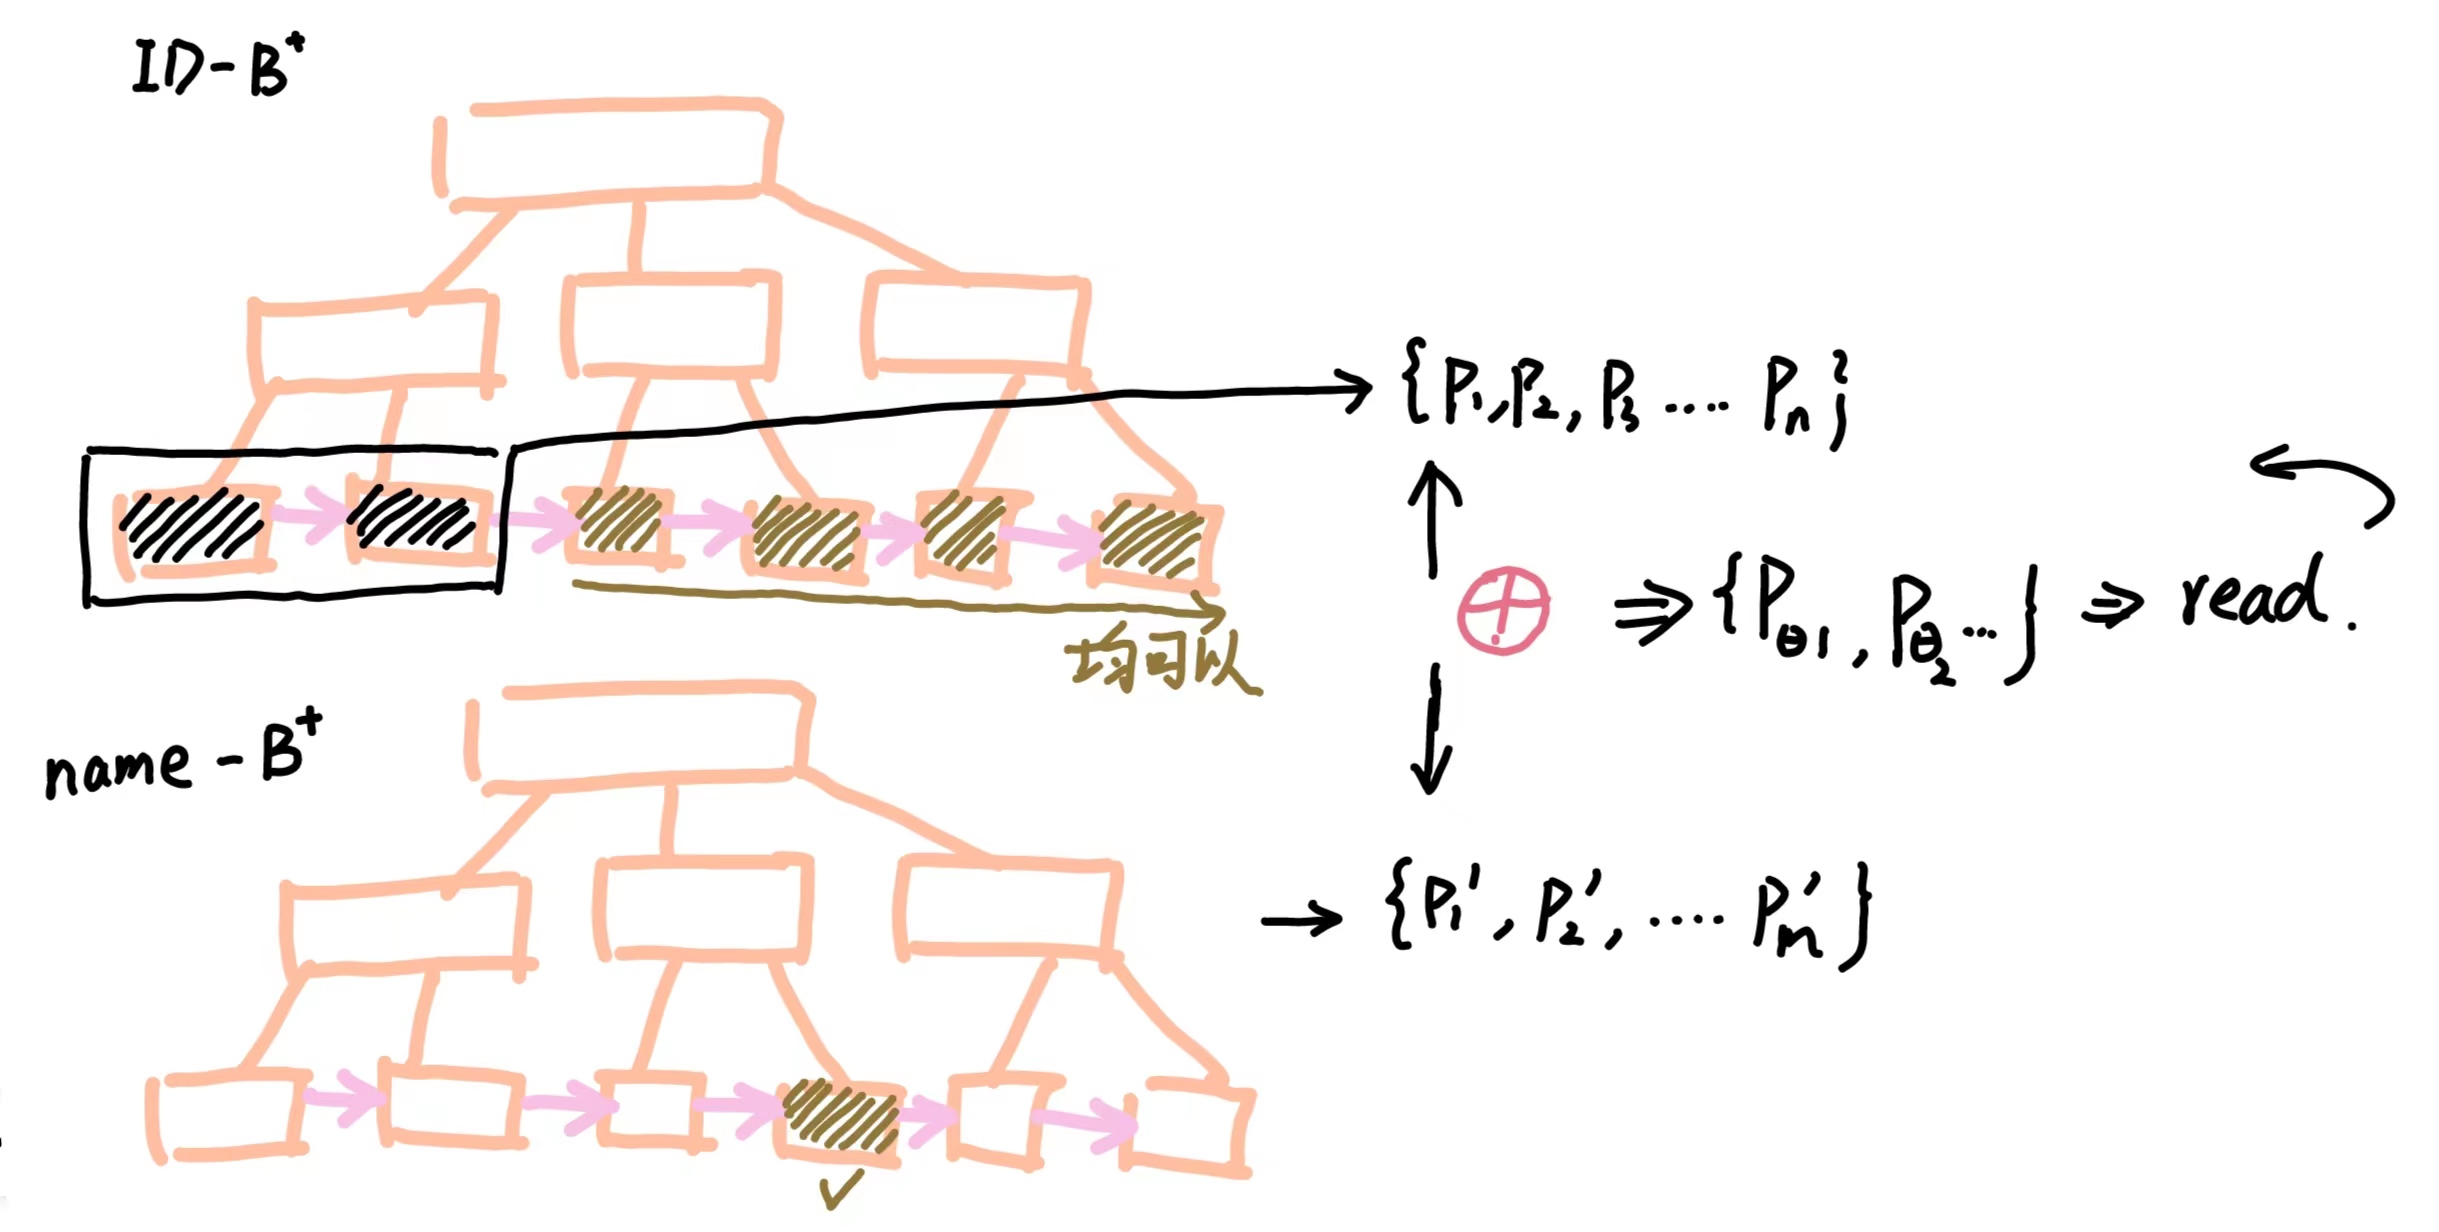 ID-B⁺
{P₁, P₂, P₃ ..... Pₙ}
⊕ ⇒ {P_θ₁, P_θ₂ ...} ⇒ read.
均可以
name-B⁺
→ {P₁', P₂', ..... Pₘ'}